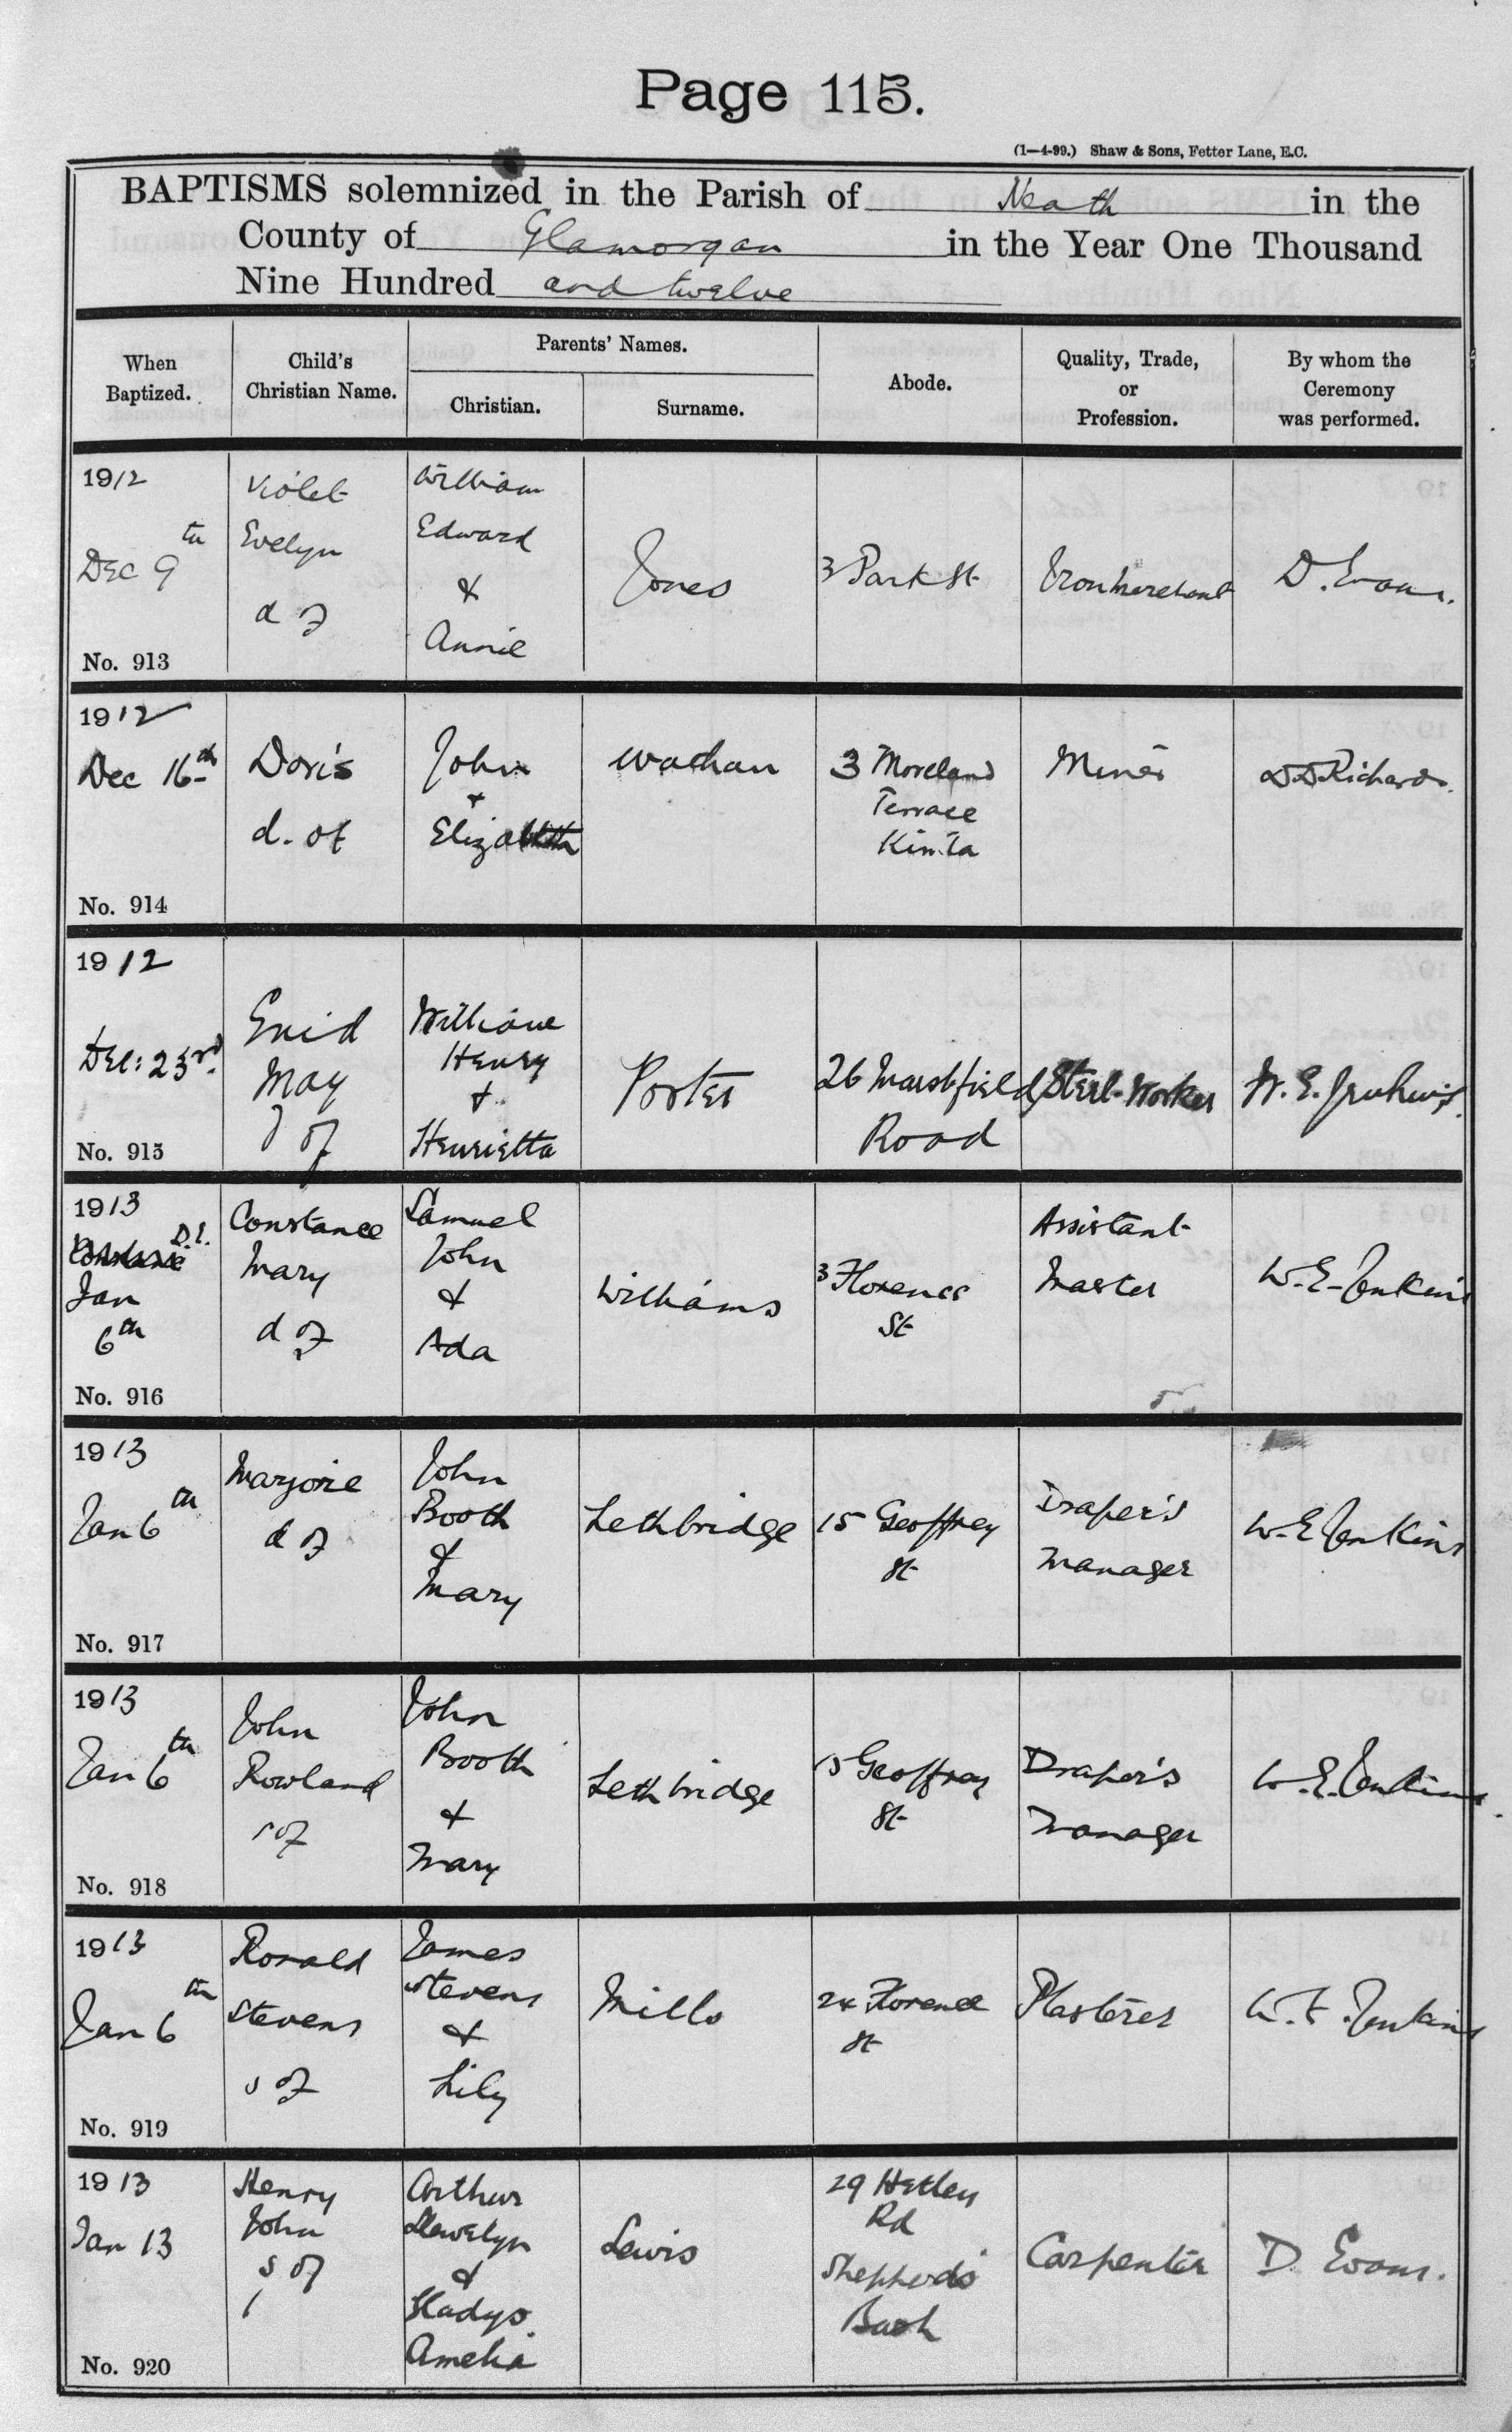 Page 115.
(1—4-99.) Shaw & Sons, Fetter Lane, E.C.
BAPTISMS solemnized in the Parish of Neath in the
County of Glamorgan in the Year One Thousand
Nine Hundred and twelve
When
Baptized.
Child's
Christian Name.
Parents' Names.
Christian.
Surname.
Abode.
Quality, Trade,
or
Profession.
By whom the
Ceremony
was performed.
1912
Dec 9th
No. 913
Violet
Evelyn
d of
William
Edward
&
Annie
Jones
3 Park St
Ironmerchant
D. Evans.
1912
Dec 16th
No. 914
Doris
d. of
John
+
Elizabeth
Wathan
3 Moreland
Terrace
Miner
D.D. Richards.
1912
Dec: 23rd.
No. 915
Enid
May
d of
William
Henry
+
Henrietta
Porter
26 Marshfield
Road
Steel-Worker
W. E. Jenkins.
1913
Jan
6th
No. 916
Constance
Mary
d of
Samuel
John
&
Ada
Williams
3 Florence
St
Assistant
Master
W. E. Jenkins
1913
Jan 6th
No. 917
Marjorie
d of
John
Booth
&
Mary
Lethbridge
15 Geoffrey
St
Draper's
Manager
W. E. Jenkins
1913
Jan 6th
No. 918
John
Rowland
s of
John
Booth
&
Mary
Lethbridge
15 Geoffrey
St
Draper's
Manager
W. E. Jenkins.
1913
Jan 6th
No. 919
Ronald
Stevens
s of
James
Stevens
&
Lily
Mills
24 Florence
St
Plasterer
W. E. Jenkins
1913
Jan 13
No. 920
Henry
John
s of
Arthur
Llewelyn
&
Gladys
Amelia
Lewis
29 Hetley
Rd
Shepherds
Bush
Carpenter
D. Evans.